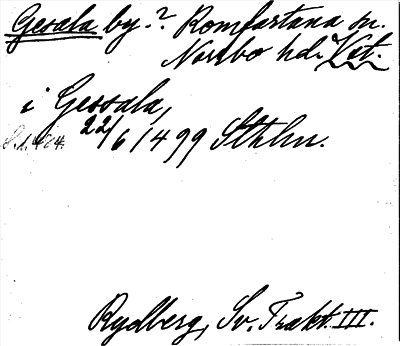 Gesala by.? Romfartuna sn.
Norrbo hd. Vstm.
i Gessala,
22/6 1499 Sthlm.
Rydberg, Sv. Trakt. III.